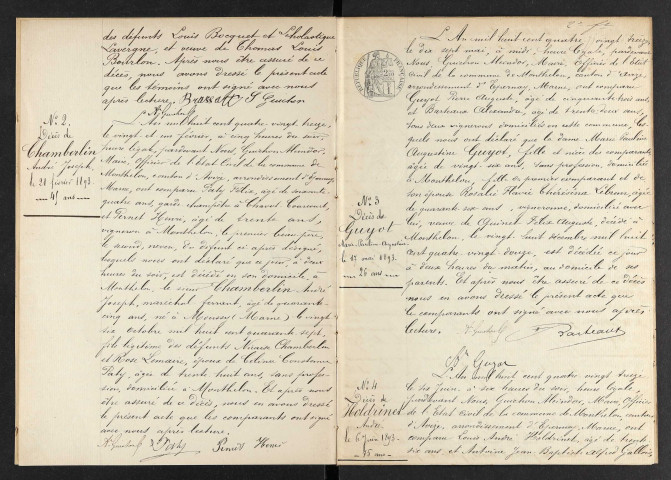 des défunts Louis Bocquet et Scholastique
Lavergne, et veuve de Thomas Louis
Bourlon. Après nous être assuré de ce
décès, nous avons dressé le présent acte
que les témoins ont signé avec nous
après lecture.
N° 2
Décès de
Chamberlin
André Joseph,
le 21 février 1893
45 ans
L'An mil huit cent quatre vingt treize,
le vingt et un février, à cinq heures du soir,
heure légale, pardevant Nous, Guichon Alcindor,
Maire, officier de l'Etat Civil de la commune de
Monthelon, canton d'Avize, arrondissement d'Epernay,
Marne, ont comparu Paty Félix, âgé de soixante
quatre ans, garde champêtre à Cravot Concourt,
et Pernet Henri, âgé de trente ans,
vigneron à Monthelon, le premier beau père,
le second, neveu, du défunt ci après désigné,
lesquels nous ont déclaré que ce jour, à deux
heures du soir, est décédé en son domicile, à
Monthelon, le sieur Chamberlin André
Joseph, maréchal ferrant, âgé de quarante-
cinq ans, né à (Marne) le vingt
six octobre mil huit cent quarante sept,
fils légitime des défunts Chamberlin
et Rose Lemaire, époux de Celina Constance
Paty, âgée de trente huit ans, sans profes-
sion, domiciliée à Monthelon. Et après nous
être assuré de ce décès, nous en avons dressé
le présent acte que les comparants ont signé
avec nous après lecture.
Paty Pernet Henri
N° 3
Décès de
Guyot
Marie Pauline Augustine
le 17 mai 1893
26 ans
L'An mil huit cent quatre vingt treize
le dix sept mai, à midi, heure légale, pardevant
Nous, Guichon Alcindor, Maire, Officier de l'état
Civil de la commune de Monthelon, canton d'Avize
arrondissement d'Epernay, Marne, ont comparu
Guyot Pierre Auguste, âgé de cinquante huit ans,
et Barteaux Alexandre, âgé de trente deux ans,
tous deux vignerons domiciliés en cette commune, les
quels nous ont déclaré que la dame Marie Pauline
Augustine Guyot, fille et nièce des comparants,
âgée de vingt six ans, sans profession, domiciliée
à Monthelon, fille du premier comparant et de
son épouse Rosalie Marie Lebrun, âgée
de quarante six ans, vigneronne, domiciliée avec
lui, veuve de Quinet Félix Auguste, décédé à
Monthelon, le vingt huit décembre mil huit
cent quatre vingt douze, est décédée ce jour
à deux heures du matin, au domicile de ses
parents. Et après nous être assuré de ce décès
nous en avons dressé le présent acte que
les comparants ont signé avec nous après
lecture.
Barteaux
Guyot
N° 4
Décès de
Holdrinet
André
le 6 juin 1893
L'An mil huit cent quatre vingt treize
le six juin à six heures du soir, heure légale,
pardevant Nous, Guichon Alcindor, Maire, Officier
de l'Etat Civil de la commune de Monthelon, canton
d'Avize, arrondissement d'Epernay, Marne, ont
comparu Louis André Holdrinet, âgé de trente
six ans et Antoine Jean Baptiste Alfred Gallois,